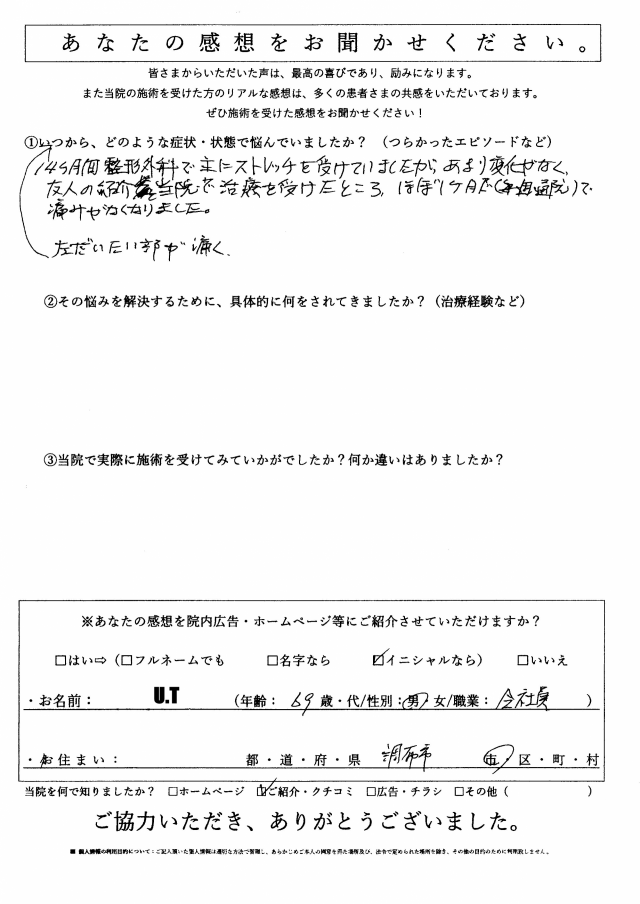 あなたの感想をお聞かせください。
皆さまからいただいた声は、最高の喜びであり、励みになります。
また当院の施術を受けた方のリアルな感想は、多くの患者さまの共感をいただいております。
ぜひ施術を受けた感想をお聞かせください！
①いつから、どのような症状・状態で悩んでいましたか？（つらかったエピソードなど）
1年4ケ月間整形外科で主にストレッチを受けていましたが、あまり変化がなく、
友人の紹介で当院で治療を受けたところ、ほぼ1ケ月で（通院）で
痛みがなくなりました。
左だいたい部が痛く、
②その悩みを解決するために、具体的に何をされてきましたか？（治療経験など）
③当院で実際に施術を受けてみていかがでしたか？何か違いはありましたか？
※あなたの感想を院内広告・ホームページ等にご紹介させていただけますか？
□はい⇨（□フルネームでも □名字なら ☑イニシャルなら） □いいえ
・お名前： U.T （年齢： 69 歳・代/性別：男・女/職業： 会社員 ）
・お住まい： 都・道・府・県 調布市 市・区・町・村
当院を何で知りましたか？ □ホームページ ☑ご紹介・クチコミ □広告・チラシ □その他（ ）
ご協力いただき、ありがとうございました。
※ 個人情報の利用目的について：ご記入頂いた個人情報は適切な方法で管理し、あらかじめご本人の同意を得た場所及び、法令で定められた場所を除き、その他の目的のために利用致しません。